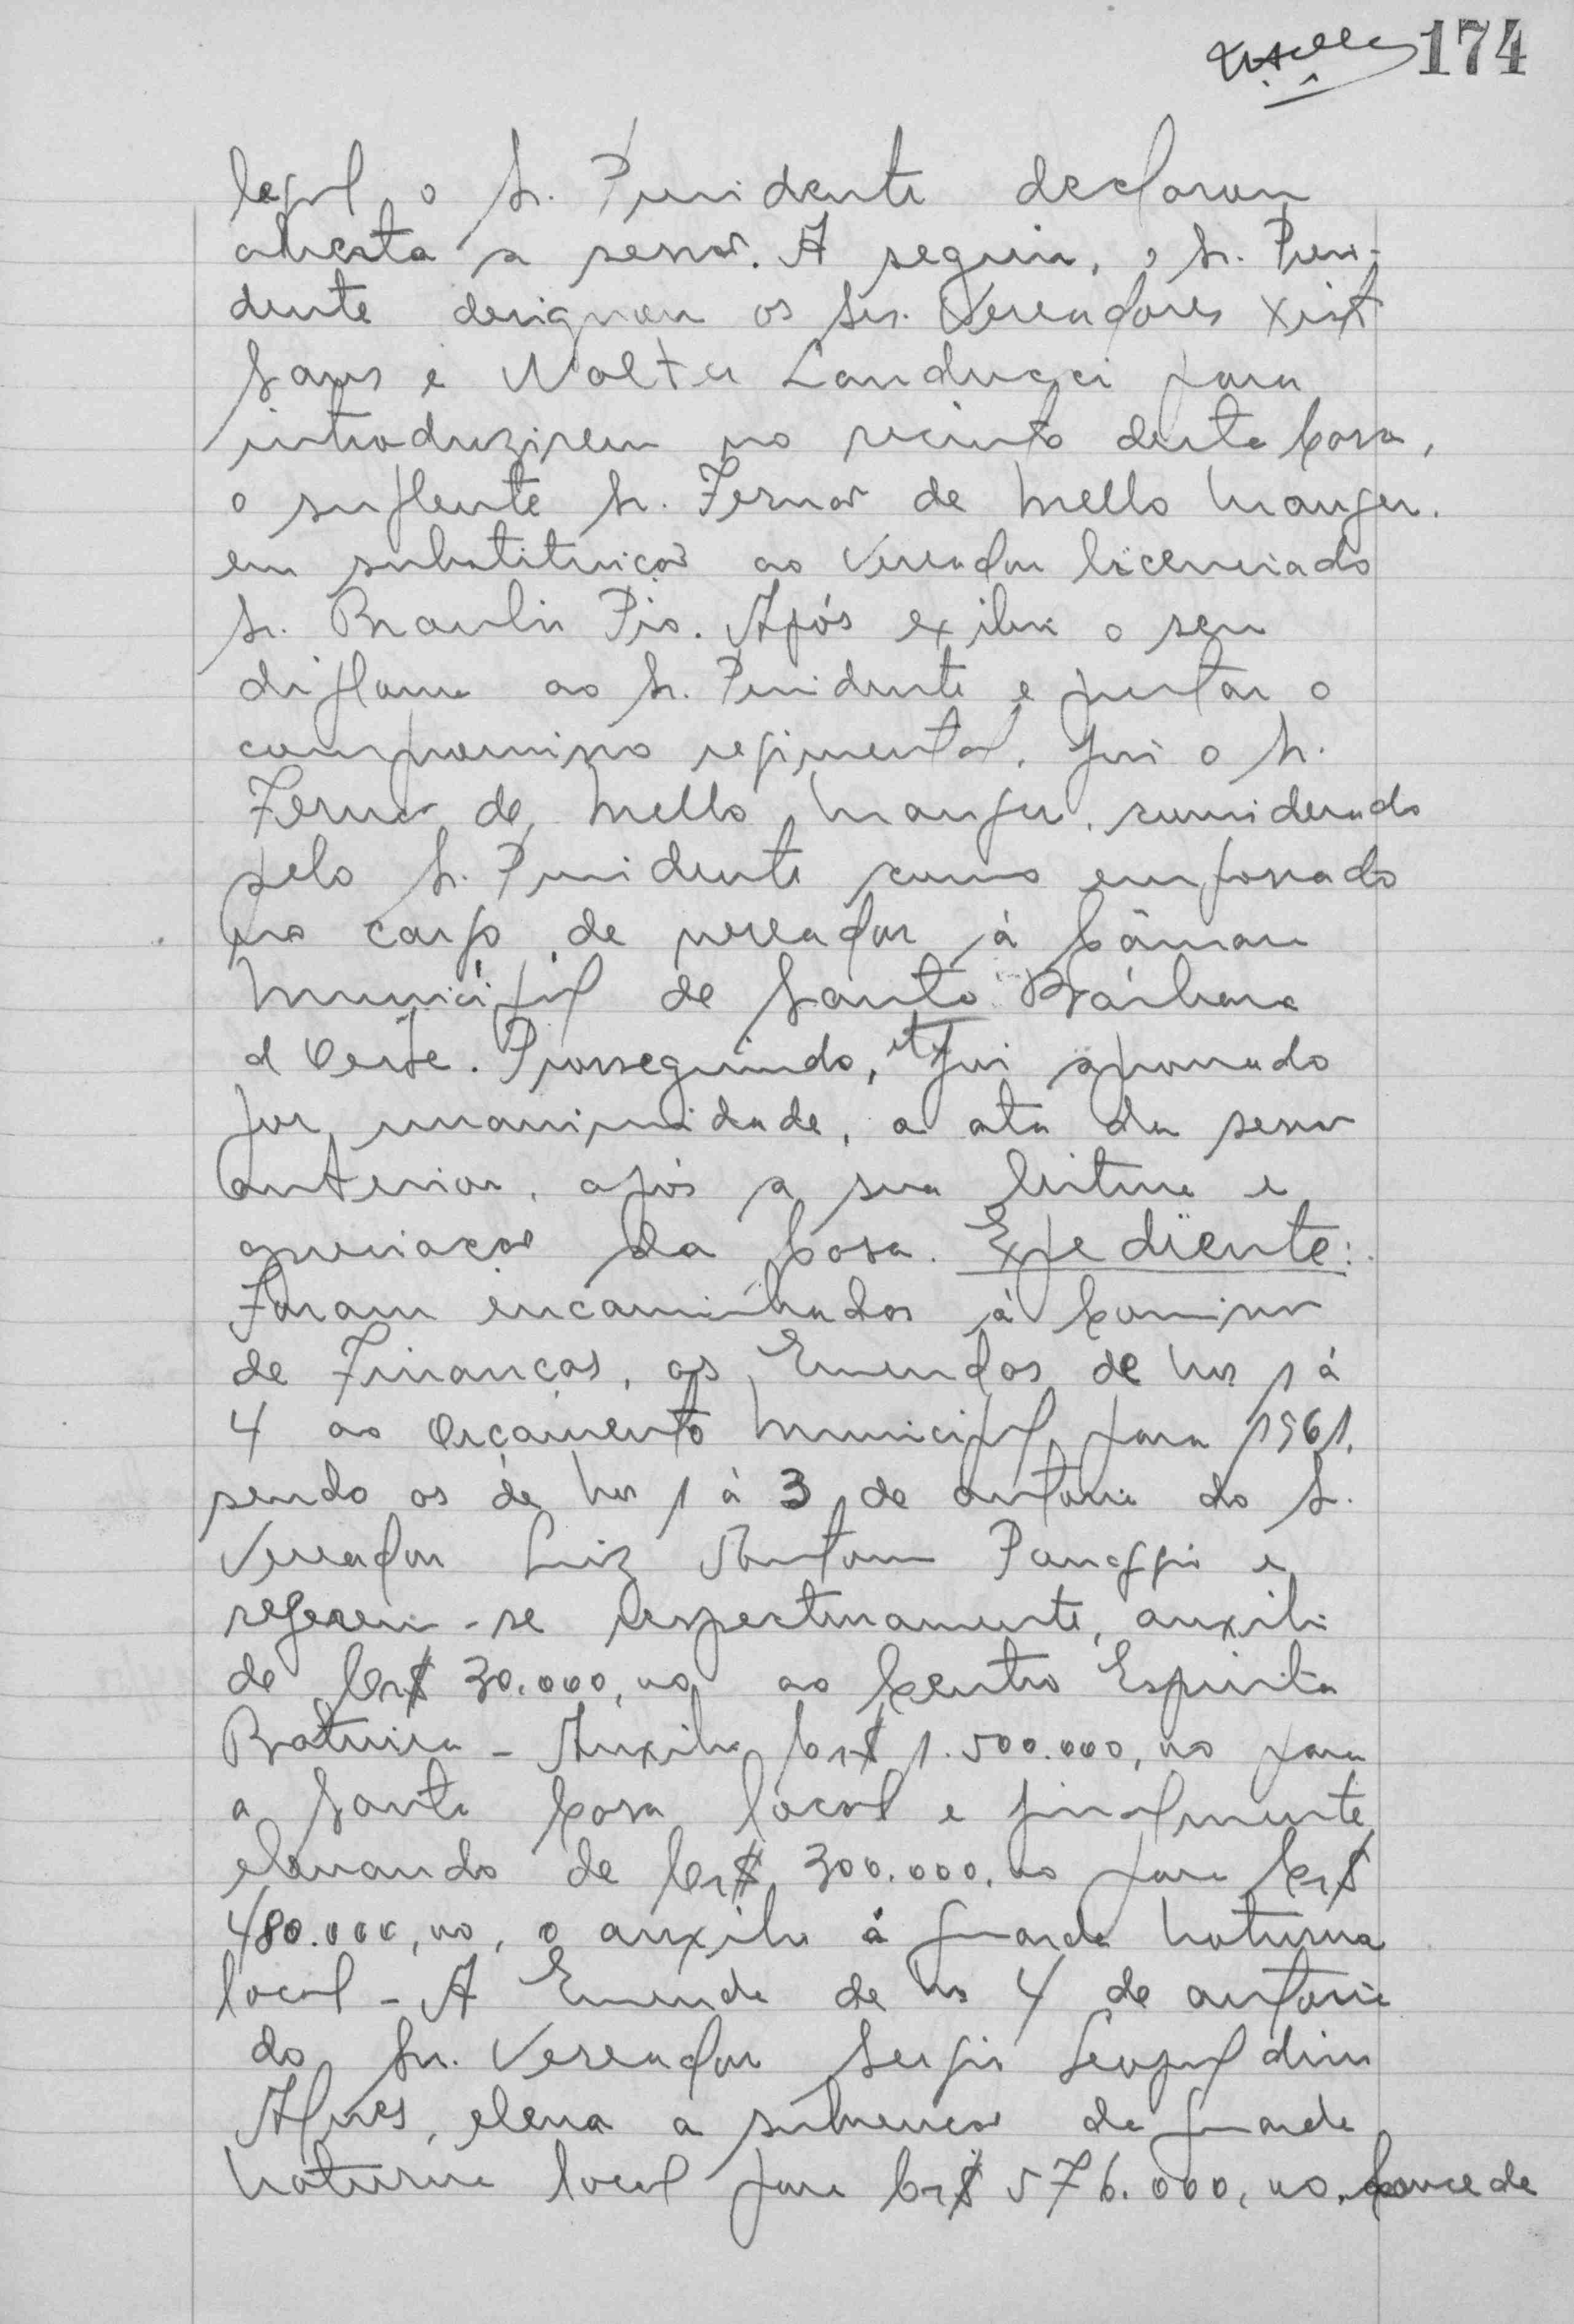 174
legal o Sr. Presidente declarou
aberta a sessão. A seguir, o Sr. Presi-
dente designou os Srs. Vereadores Xisto
Sans e Walter Landucci para
introduzirem no recinto desta Casa,
o suplente Sr. Fernão de Mello Manger.
em substituição ao Vereador licenciado
Sr. Braulio Pio. Após exibir o seu
diploma ao Sr. Presidente e prestar o
compromisso regimental, foi o Sr.
Fernão de Mello Manger, considerado
pelo Sr. Presidente como empossado
no cargo de vereador à Câmara
Municipal de Santa Bárbara
d'Oeste. Prosseguindo, foi aprovado
por unanimidade, a ata da sessão
anterior, após a sua leitura e
apreciação da Casa. Expediente:
Foram encaminhados à Comissão
de Finanças, as Emendas de nos 1 à
4 ao Orçamento Municipal para 1961,
sendo as de nos 1 à 3 de autoria do Sr.
Vereador Luiz Antonio Panaggio e
referem-se respectivamente, auxilio
de Cr$ 30.000,00 ao Centro Espirita
Batuira - Auxilio Cr$ 1.500.000,00 para
a Santa Casa local e finalmente
elevando de Cr$ 300.000,00 para Cr$
480.000,00, o auxilio à Guarda Noturna
local - A Emenda de no 4 de autoria
do Sr. Vereador Sergio Leopoldino
Alves, eleva a subvenção da Guarda
Noturna local para Cr$ 576.000,00, concede